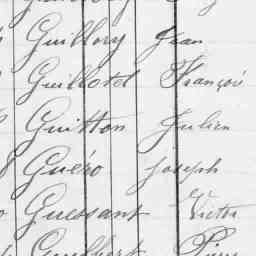 Guillory Jean
Guillotel François
Guitton Julien
Guéro Joseph
Guessant Victor